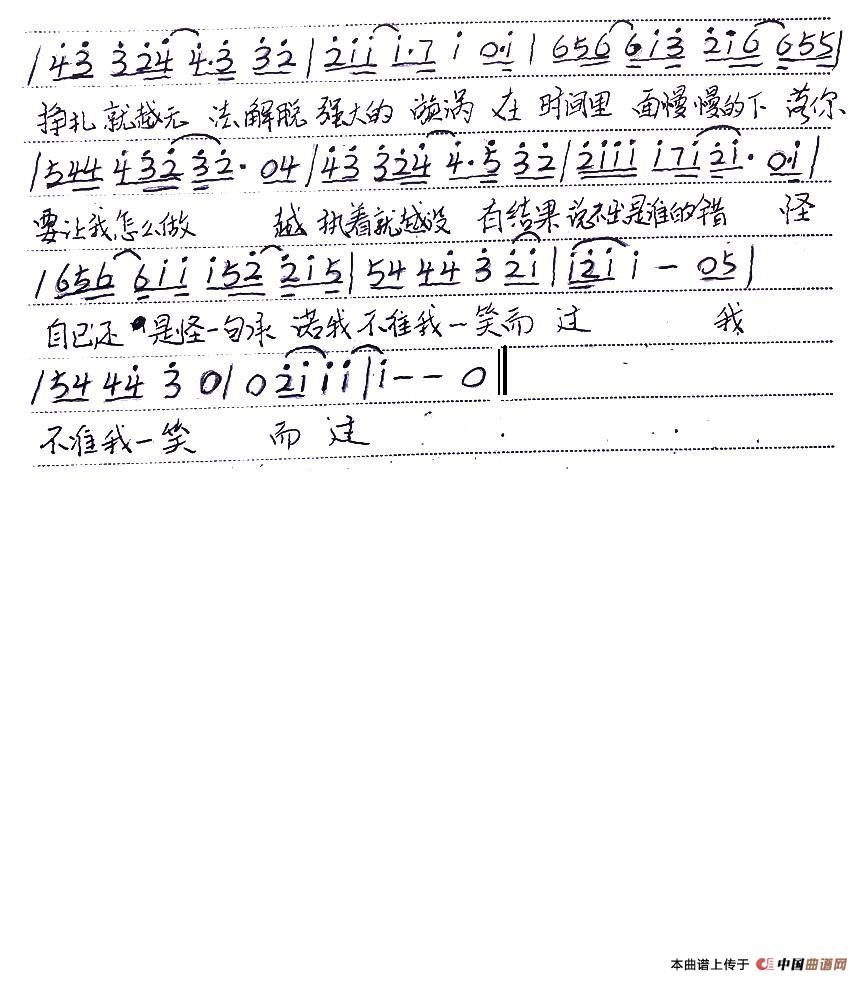 |43 324 4·3 32|2ii i·7 i 0·i|656 6i3 2i6 655|
挣扎就越无 法解脱 强大的 漩涡 在 时间里 面慢慢的下 落你
|544 432 32· 04|43 324 4·5 32|2iii i7i 2i· 0·i|
要让我怎么做 越 执着就越没 有结果 说不出是谁的错 怪
|656 6ii i52 2i5|54 44 3 2i|i2i i — 05|
自己还 是怪一句承 诺我 不准我一笑而 过 我
|54 44 3 0|0 2i i i|i — — 0||
不准我一笑 而 过
本曲谱上传于 中国曲谱网